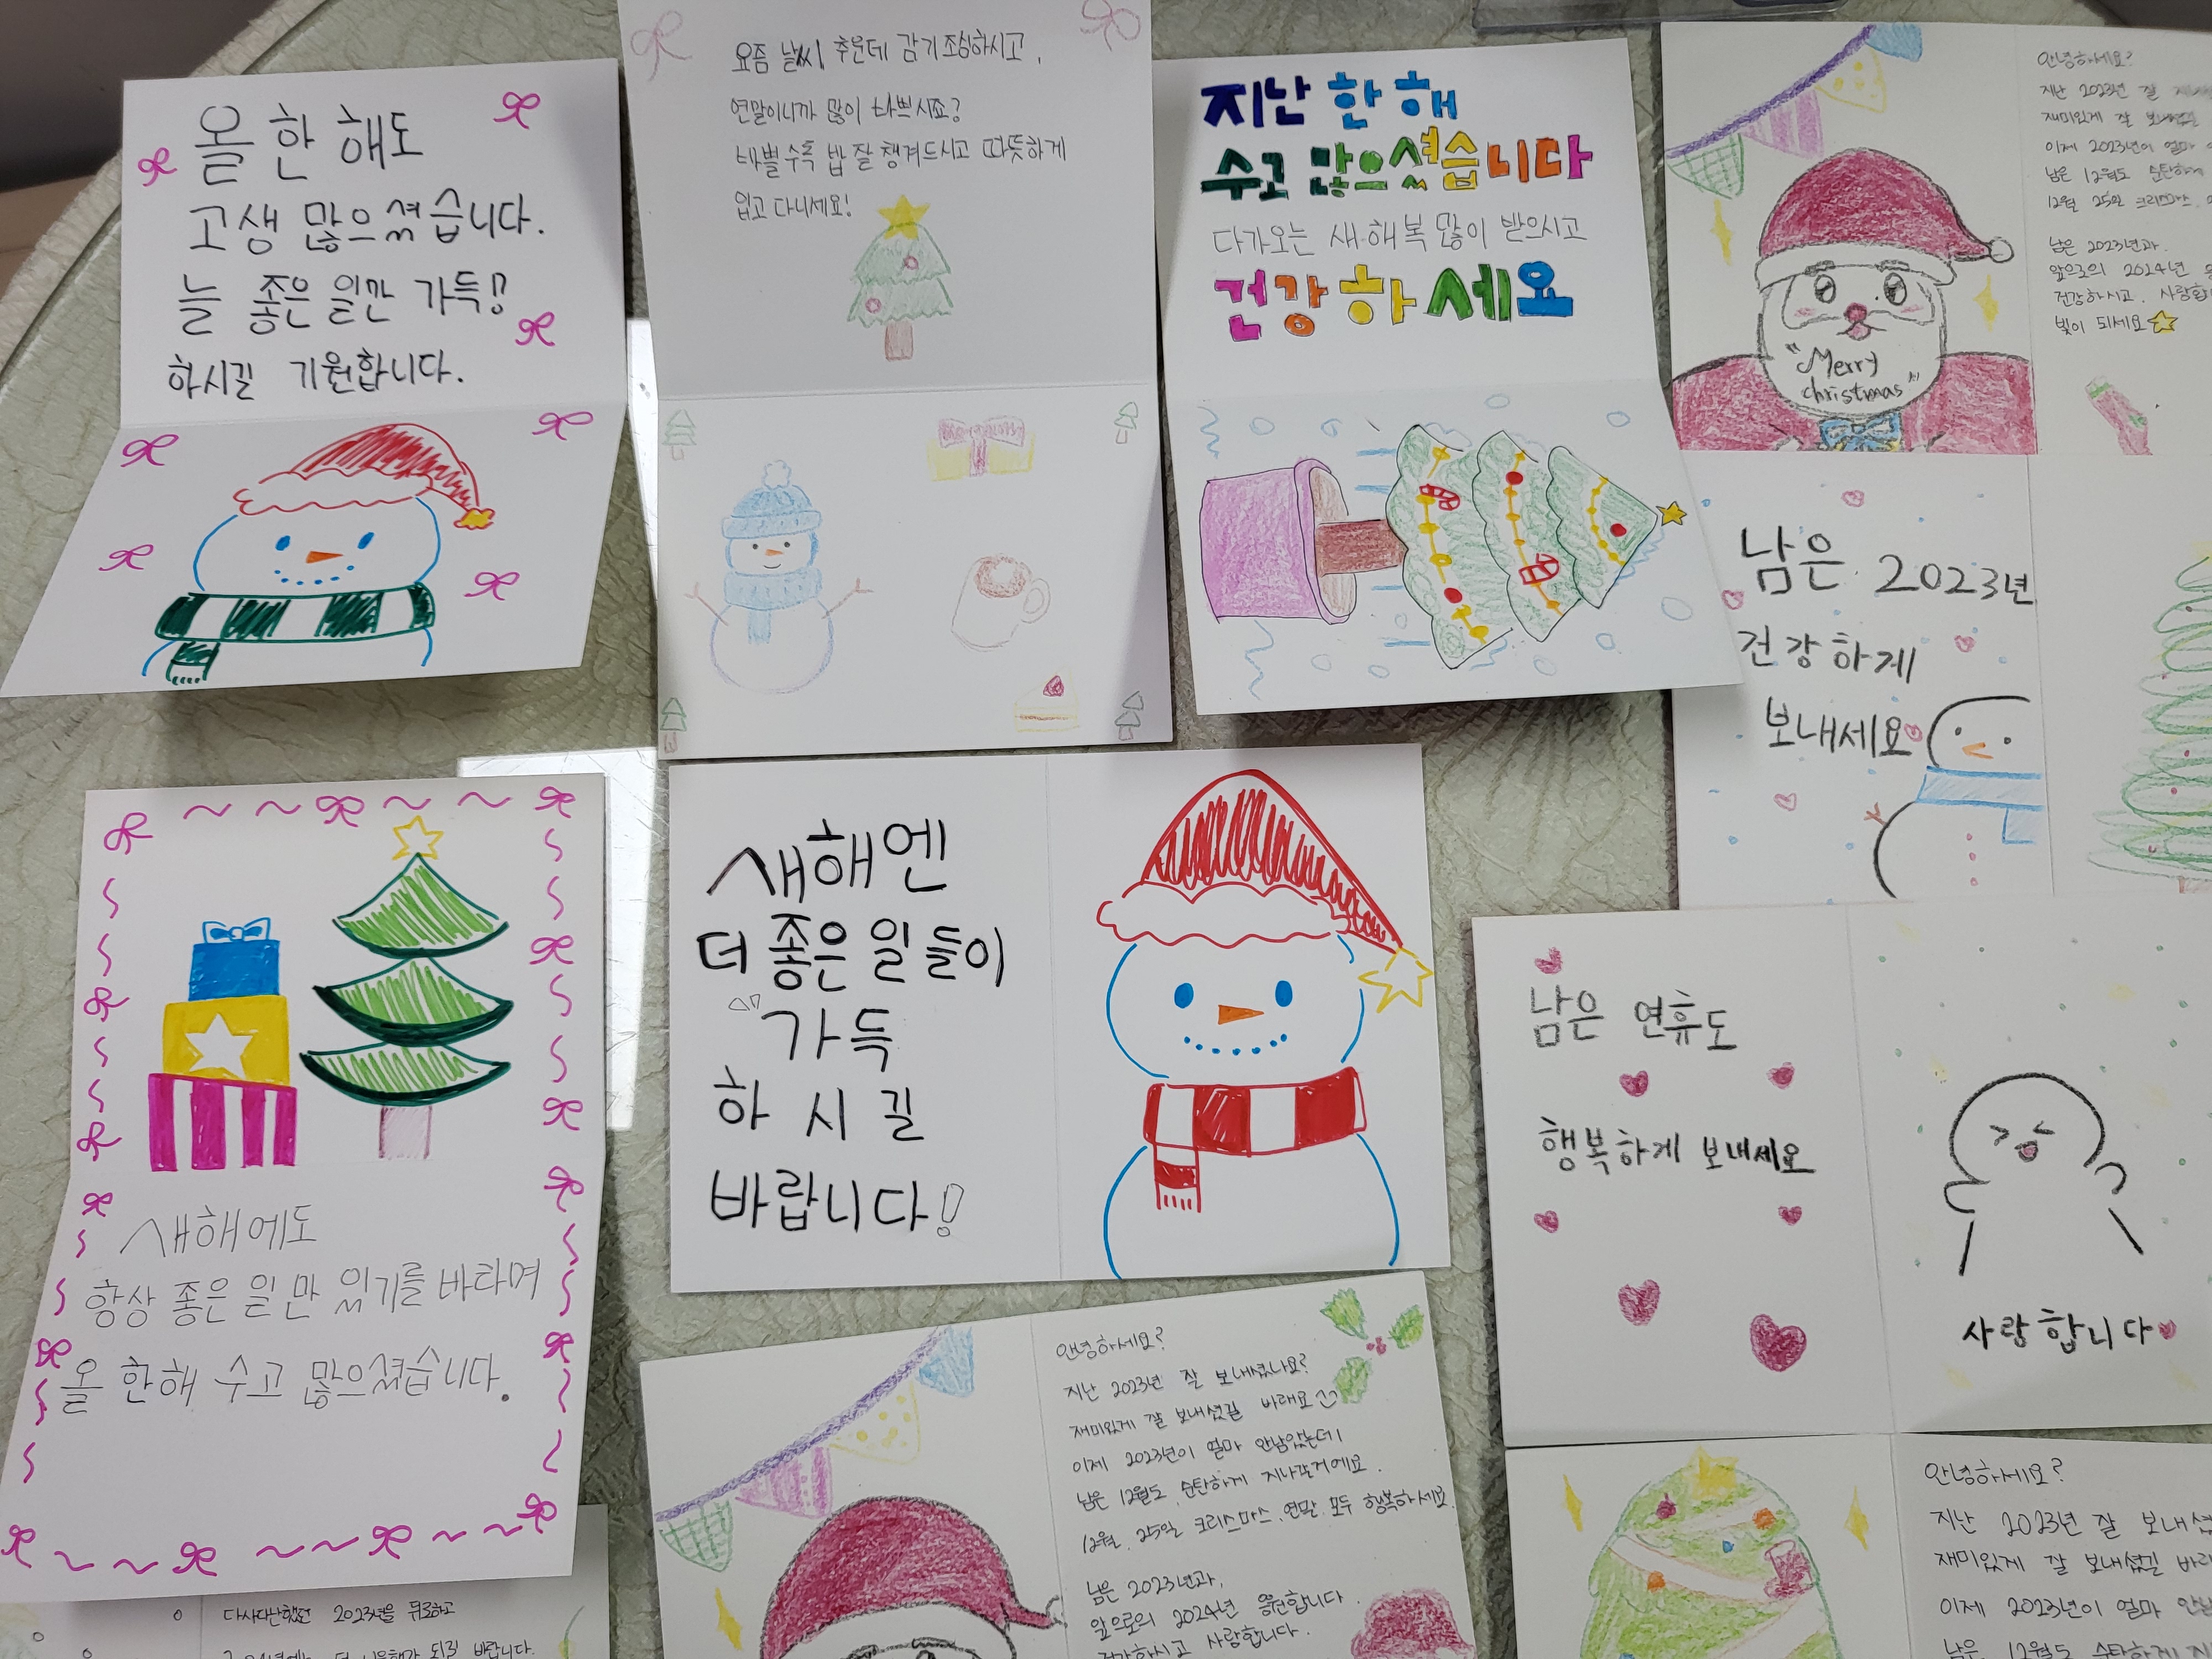 올 한 해도
고생 많으셨습니다.
늘 좋은 일만 가득!!
하시길 기원합니다.
요즘 날씨 추운데 감기조심하시고,
연말이니까 많이 바쁘시죠?
바쁠수록 밥 잘 챙겨드시고 따뜻하게
입고 다니세요!
지난 한 해
수고 많으셨습니다
다가오는 새해복 많이 받으시고
건강하세요
"Merry
christmas"
안녕하세요?
지난 2023년 잘
재미있게 잘
이제 2023년이 얼마
남은 12월도 순탄하게
12월 25일 크리스마스,
남은 2023년과.
앞으로의 2024년
건강하시고. 사랑합
빛이 되세요
남은 2023년
건강하게
보내세요
새해에도
항상 좋은 일만 있기를 바라며
올 한해 수고 많으셨습니다.
새해엔
더 좋은 일들이
가득
하시길
바랍니다!
남은 연휴도
행복하게 보내세요
사랑합니다
다사다난했던 2023년을 뒤로하고
되길 바랍니다.
안녕하세요?
지난 2023년 잘 보내셨나요?
재미있게 잘 보내셨길 바래요
이제 2023년이 얼마 안남았는데
남은 12월도 순탄하게 지나갈거에요.
12월. 25일 크리스마스. 연말 모두 행복하세요.
남은 2023년과,
앞으로의 2024년 응원합니다.
건강하시고 사랑합니다.
안녕하세요?
지난 2023년 잘 보내셨
재미있게 잘 보내셨길 바래
이제 2023년이 얼마 안남
남은 12월도 순탄하게